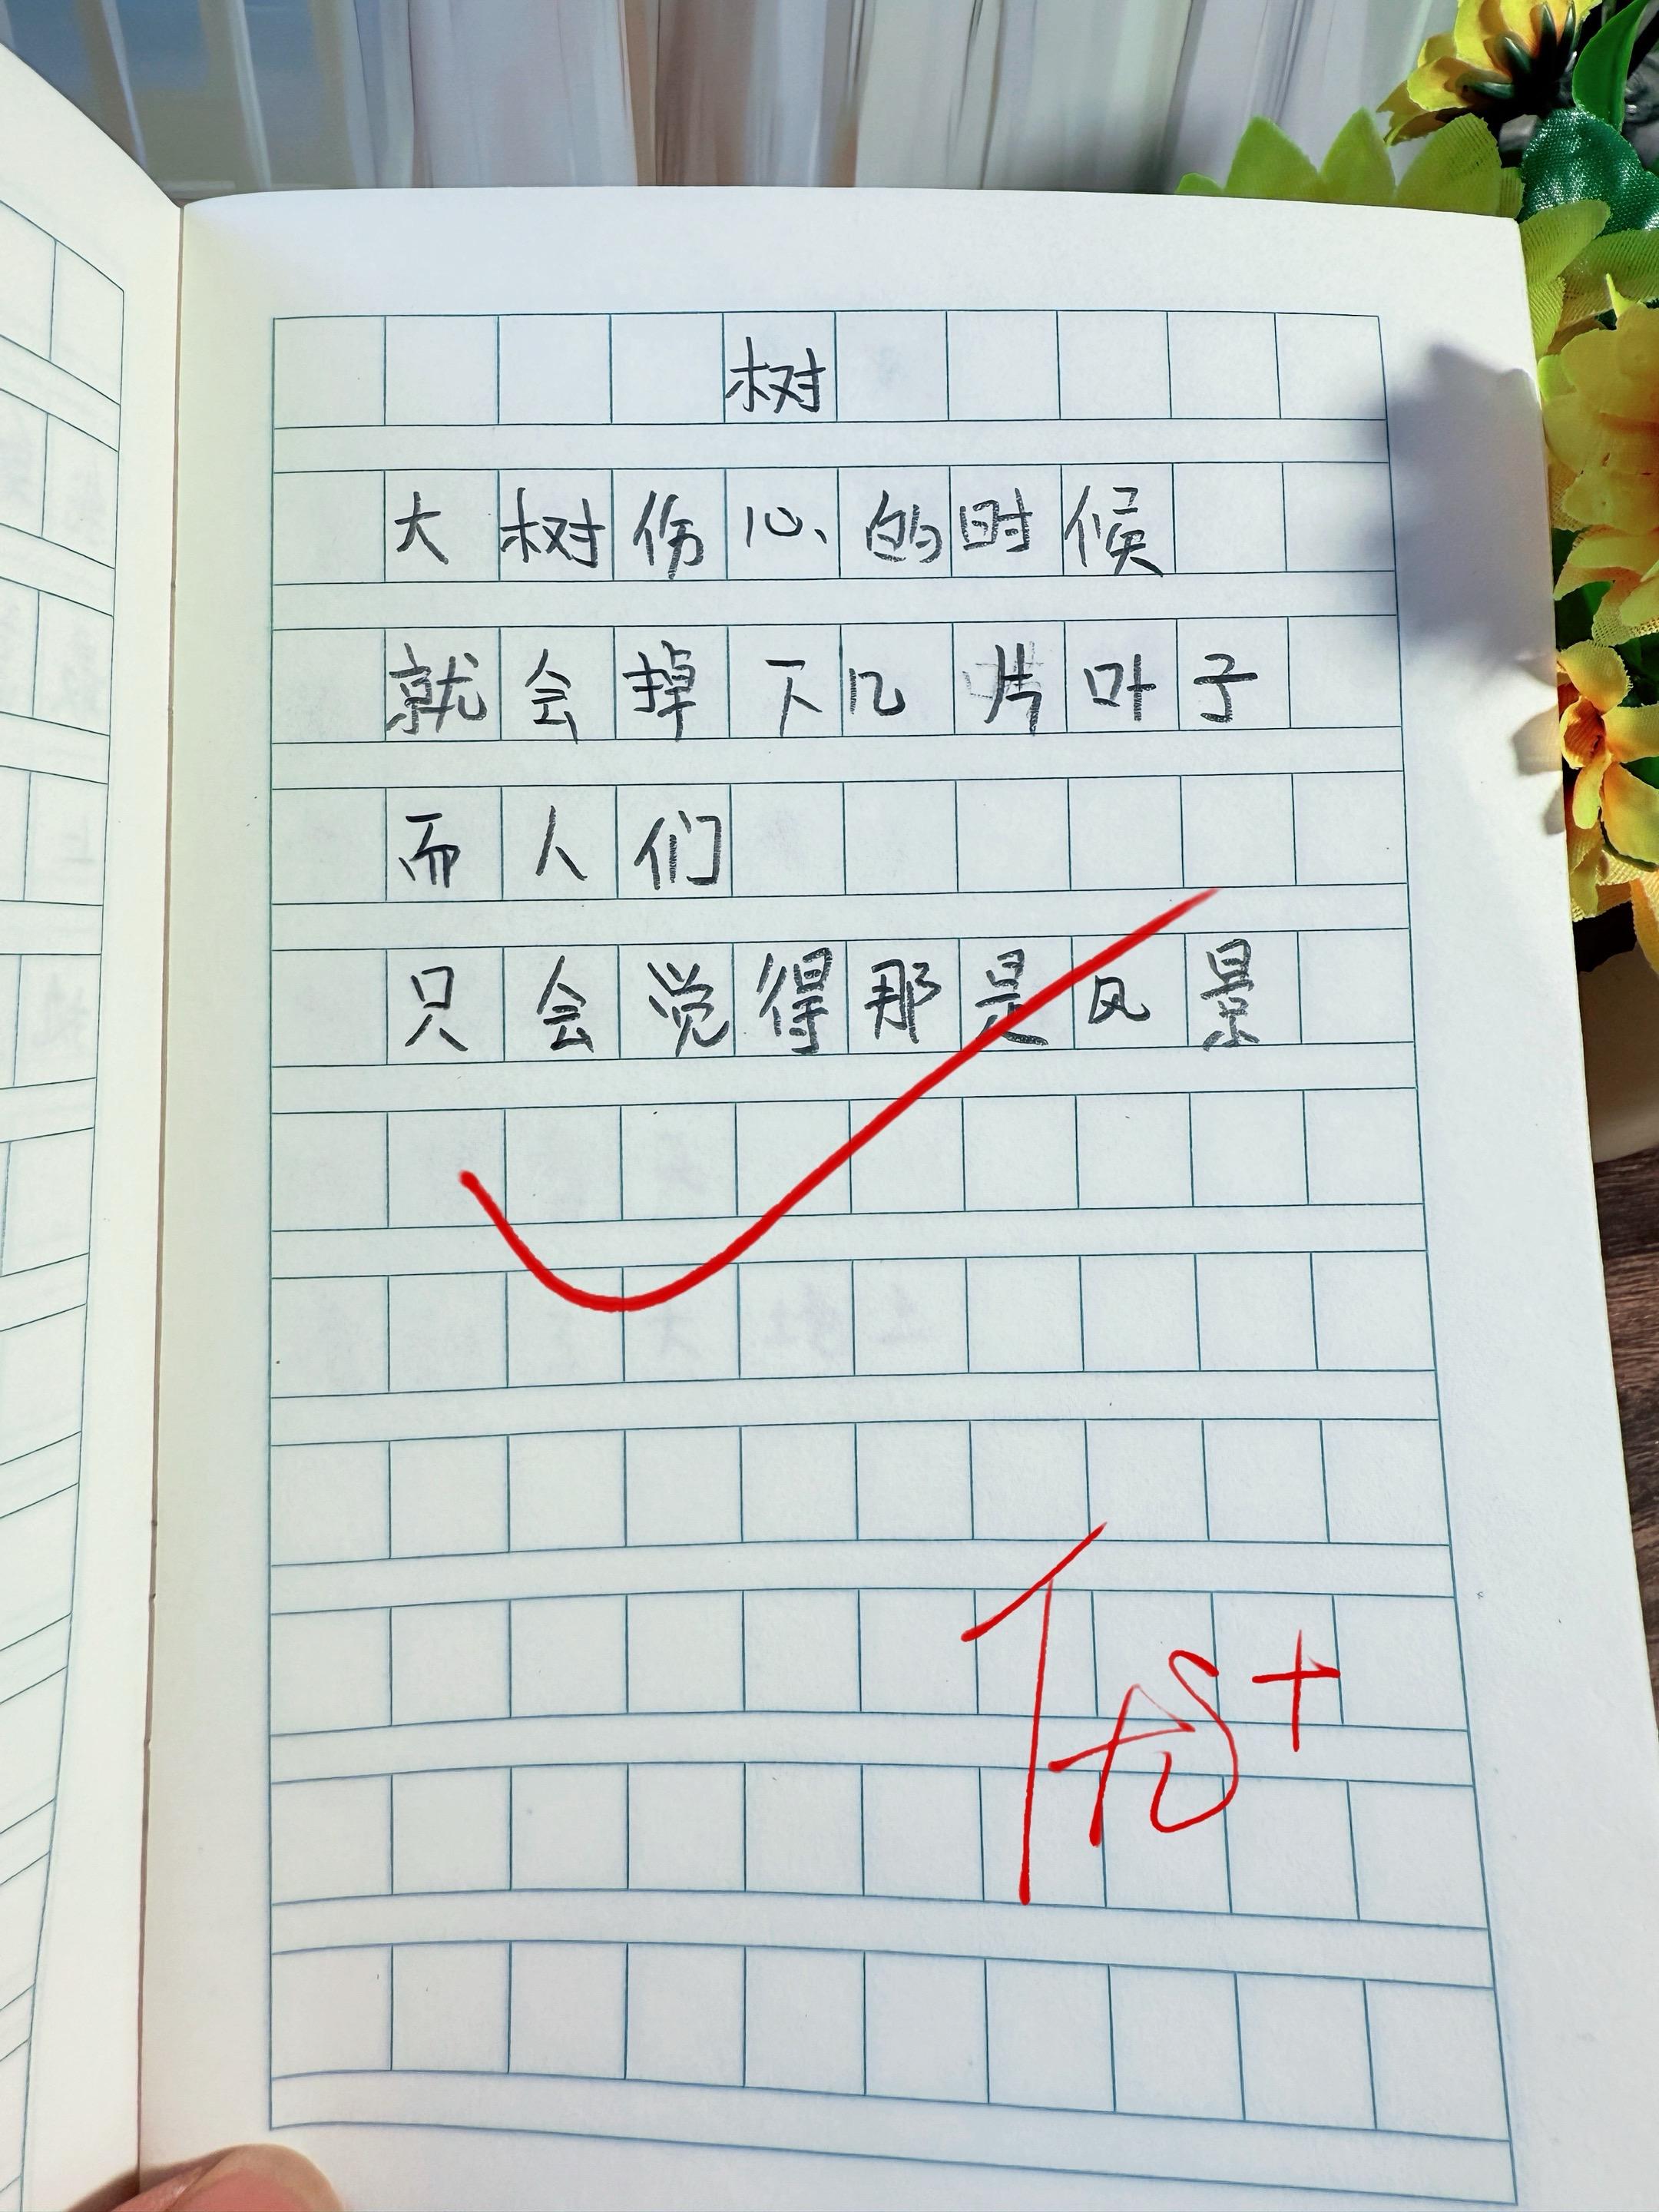 树
大树伤心的时候
就会掉下几片叶子
而人们
只会觉得那是风景